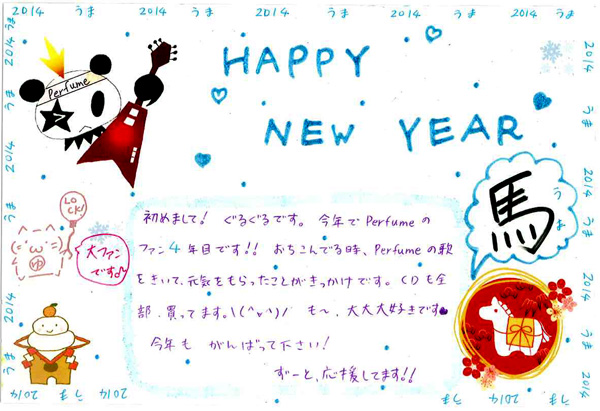 2014 うま 2014 うま 2014 うま 2014 うま
HAPPY
NEW YEAR
Perfume
馬
うま
LOCK!
(=´ω`=)
ゆ
大ファン
です♪
初めまして! ぐるぐるです。 今年で Perfume の
ファン 4 年目です!! おちこんでる時、Perfume の歌
をきいて、元気をもらったことがきっかけです。 CD も全
部、買ってます。\(^v^)/ も〜、大大大好きです♥
今年も がんばって下さい!
ずーと、応援してます!!
2014 うま 2014 うま 2014 うま
2014 うま 2014 うま 2014
うま 2014 うま 2014 うま 2014 うま